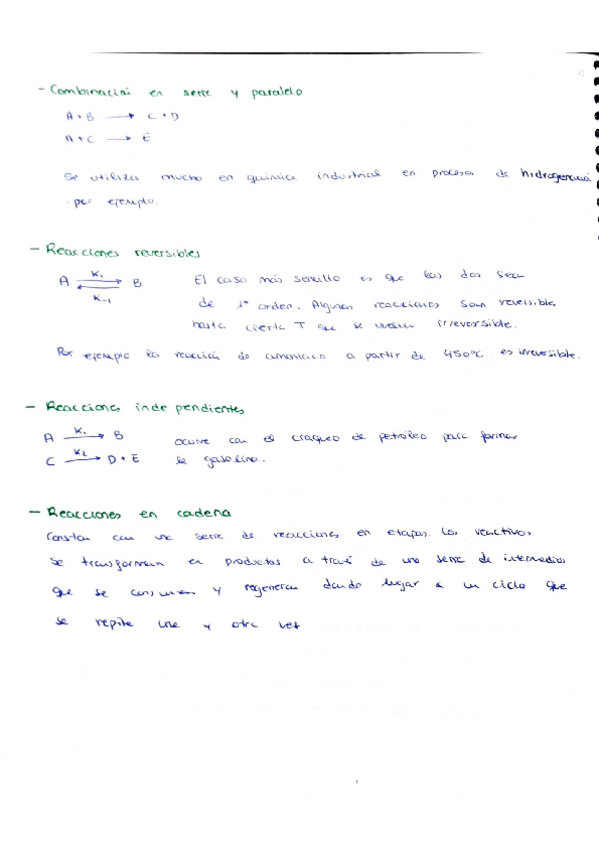 - Combinación en serie y paralelo
A + B → C + D
A + C → E
Se utiliza mucho en química industrial en procesos de hidrogenació
por ejemplo.
- Reacciones reversibles
A ⇄ B K₁ K₋₁
El caso más sencillo es que las dos sean
de 1º orden. Algunas reacciones son reversibles
hasta cierta T que se vuelven irreversible.
Por ejemplo la reacción de amoniaco a partir de 450ºC es irreversible.
- Reacciones independientes
A —K₁→ B ocurre con el craqueo de petróleo para formar
C —K₂→ D + E la gasolina.
- Reacciones en cadena
Constan con una serie de reacciones en etapas. Los reactivos
se transforman en productos a través de una serie de intermedios
que se consumen y regeneran dando lugar a un ciclo que
se repite una y otra vez